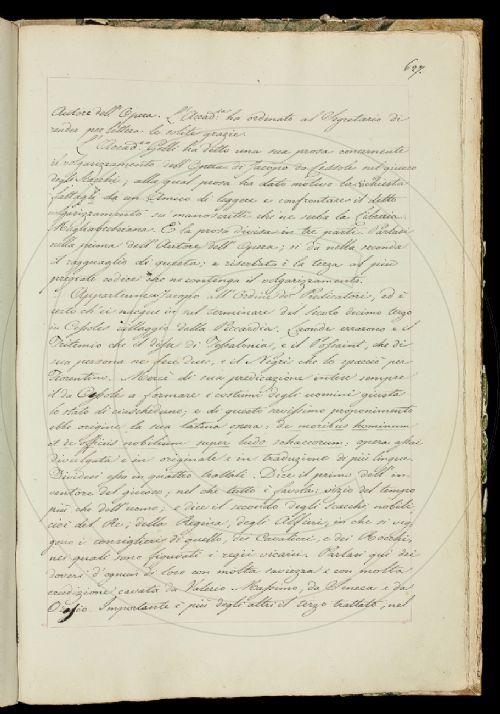 697.
Autore dell' Opera. L'Accad.ia ha ordinato al Segretario di
render per lettera le solite grazie.
L'Accad.co ha detto una sua prosa concernente
il volgarizzamento dell'Opera di Jacopo da Cessole sul giuoco
degli Scacchi; alla qual prosa ha dato motivo la richiesta
fattagli da un Amico di leggere e confrontare il detto
volgarizzamento su manoscritti che ne serba la Libreria
Magliabechiana. È la prosa divisa in tre parti. Parlasi
nella prima dell'Autore dell'Opera; si dà nella seconda
il ragguaglio di questa; e riserbata è la terza al più
pregiato codice che ne contenga il volgarizzamento.
Apparteneva Jacopo all'Ordine de' Predicatori, ed è
certo ch'ei nacque in sul terminare del secolo decimo terzo
in Cessoles villaggio della Piccardia. Laonde errarono e il
Tritemio che il disse di Tessalonia, e il Possevino, che di
sua persona ne fece due, e il Negri che lo spacciò per
Fiorentino. Mercè di sua predicazione intese sempre
il da Cessole a formare i costumi degli uomini giusta
lo stato di ciascheduno; e da questo savissimo proponimento
ebbe origine la sua latina opera: De moribus hominum
et de officiis nobilium super ludo schaccorum: opera assai
divulgata e in originale e in traduzione di più lingue.
Dividesi essa in quattro trattati. Dice il primo dell'in-
ventore del giuoco, nel che tutto è favola: vizio del tempo
più che dell'uomo; e dice il secondo degli scacchi nobili,
cioè del Re, della Regina, degli Alfieri, in che si veg-
gono i consiglieri di quello, dei Cavalieri, e dei Rocchi,
nei quali sono figurati i regii vicarii. Parlasi quì dei
doveri d'ognun di loro con molta saviezza e con molta
erudizione cavata da Valerio Massimo, da Seneca e da
Importante è più degli altri il terzo trattato, nel